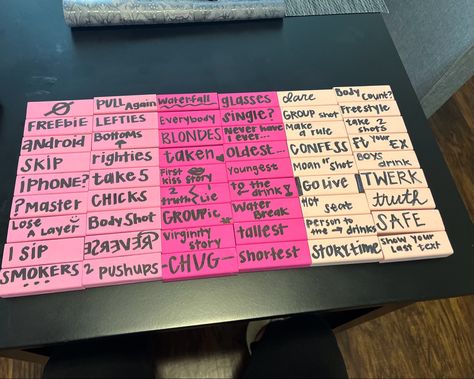 FREEBIE
android
SKIP
iPHONE?
?Master
Lose
a Layer
1 SIP
SMOKERS...
PULL Again
LEFTIES
Bottoms ↑
righties
take 5
CHICKS
Body Shot
REVERSE
2 PUSHUPS
Waterfall
Everybody
BLONDES
taken
First
kiss story
2 truths
1 Lie
GROUPie
virginity
story
-CHUG-
glasses
single?
Never have
I ever...
Oldest...
youngest
to the
→ drink
Water
Break
tallest
shortest
dare
GROUP shot
Make
a rule
CONFESS
Moan or shot
Go live
HOT
seat
person to
the → drinks
STORYTIME
Body
Count?
Freestyle
take 2
shots
FT your
EX
BOYS
drink
TWERK
truth
SAFE
Show your
last text